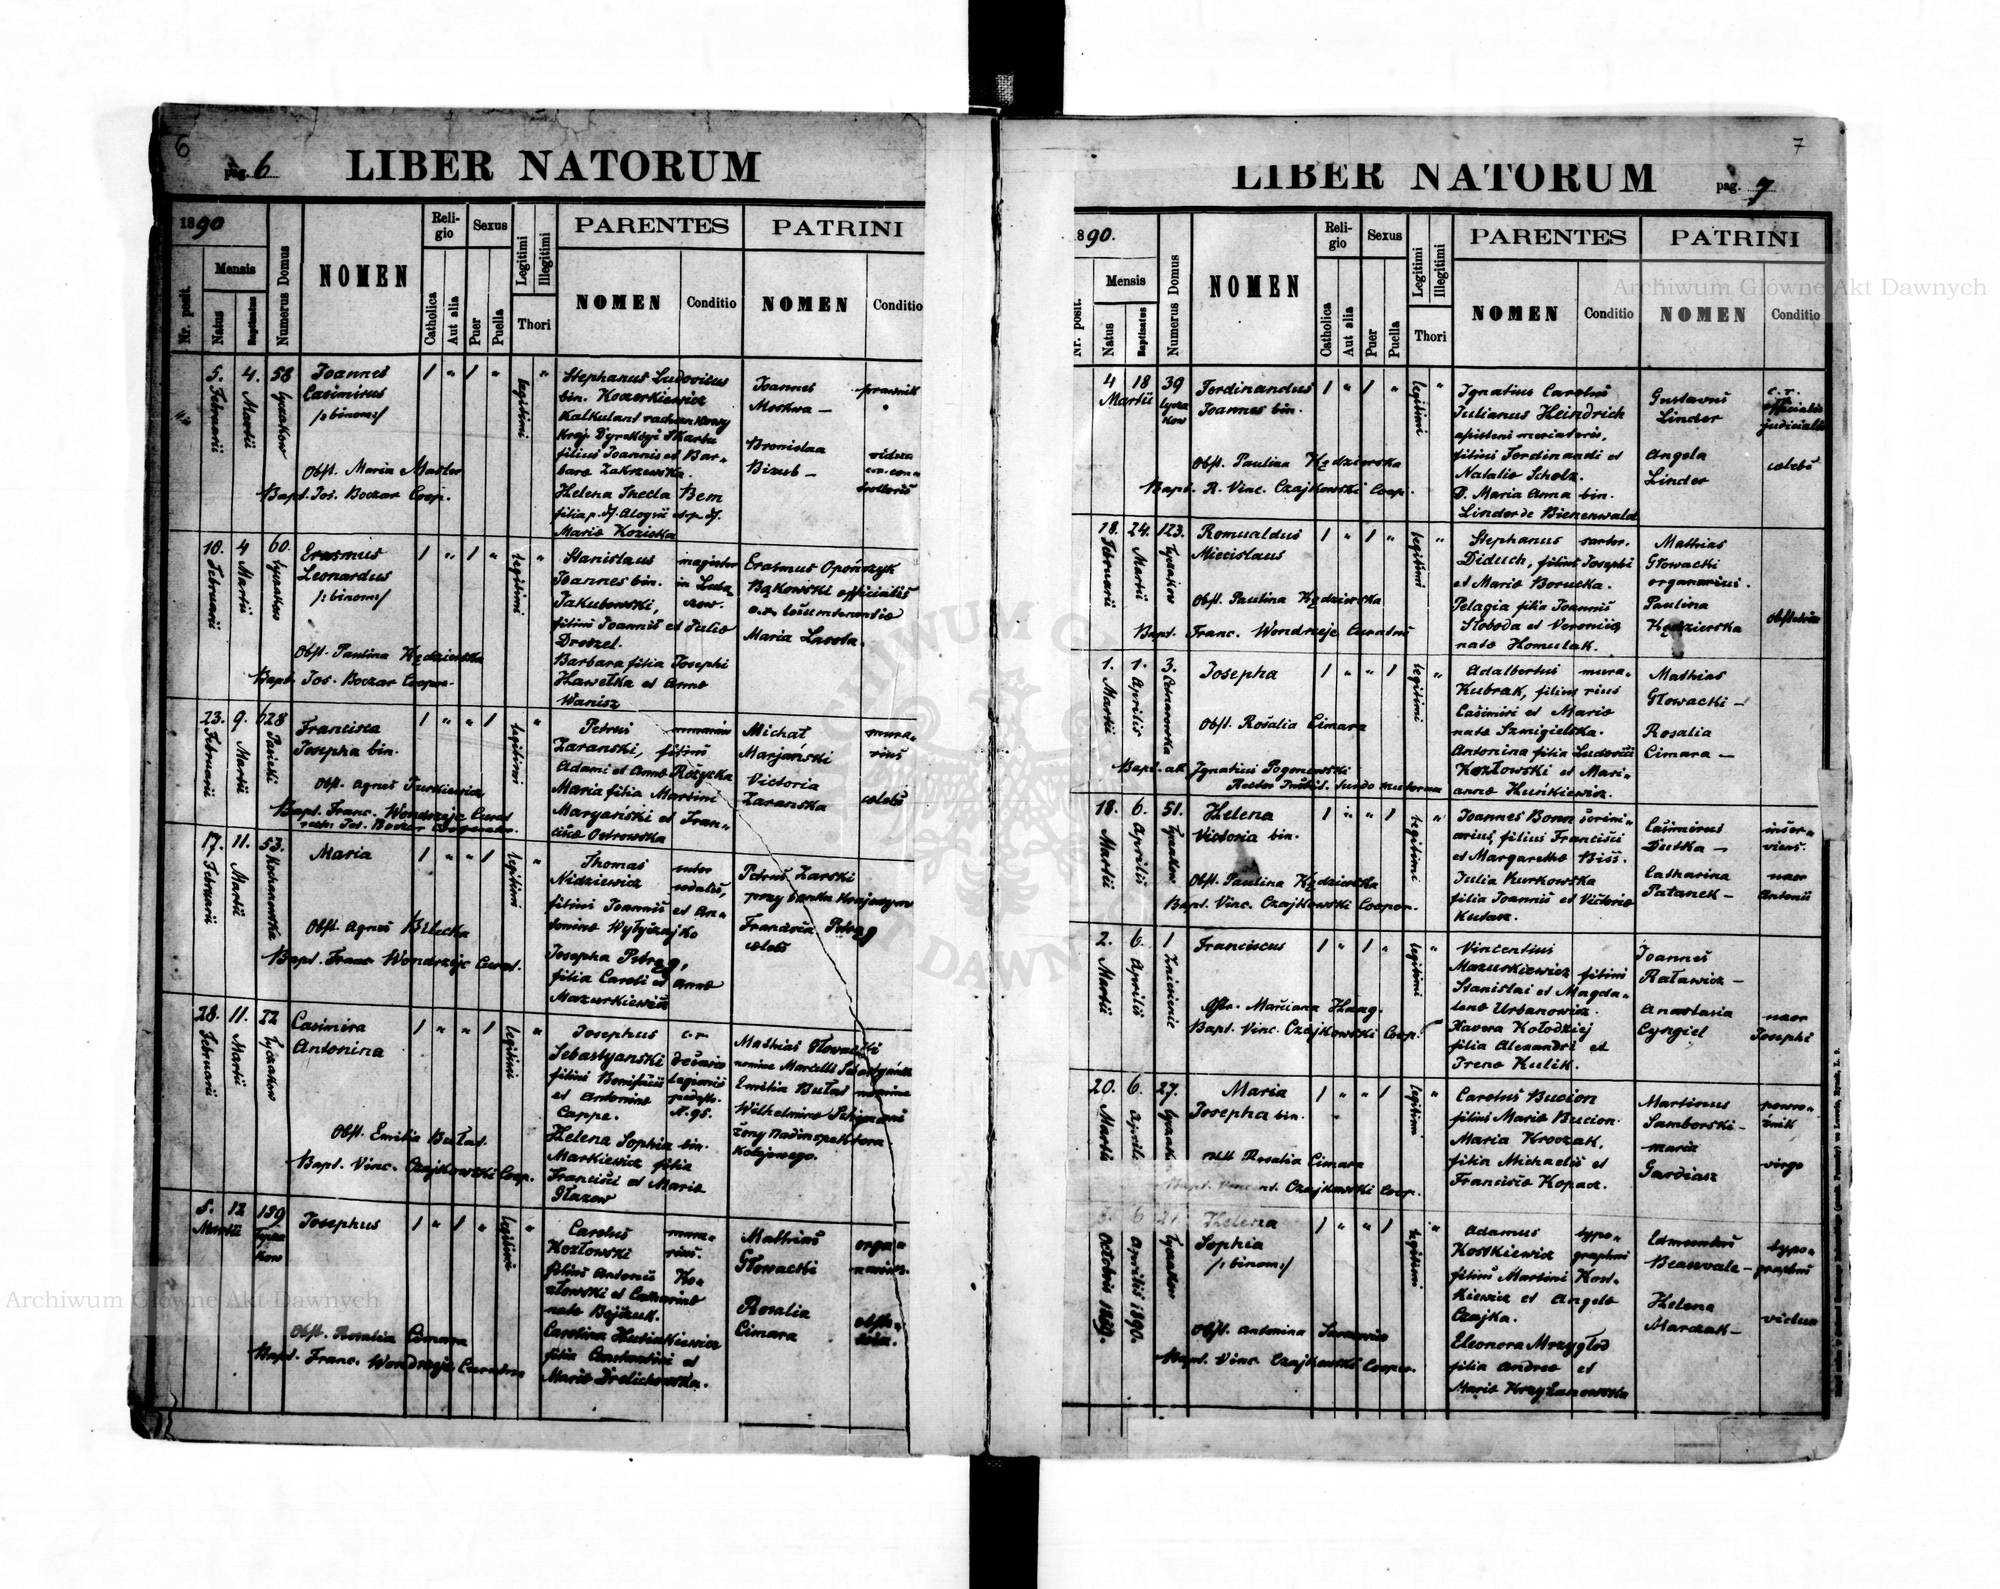 6
pag. 6
LIBER NATORUM
1890
Mensis
Nr. posit.
Natus
Baptisatus
Numerus Domus
NOMEN
Religio
Catholica
Aut alia
Sexus
Puer
Puella
Legitimi
Illegitimi
Thori
PARENTES
NOMEN
Conditio
PATRINI
NOMEN
Conditio
5. Februarii
4. Martii
58 Łyczaków
Joannes
Casimirus
/:binom:/
Obst. Maria Master
Bapt. Jos. Boczar Coop.
legitimi
Stephanus Ludovicus
bin. Koczerkiewicz
Kalkulant rachunkowy
Kraj. Dyrekcyi Skarbu
filius Joannis et Bar-
barae Zakrzewska.
Helena Thecla Bem
filia p. df. Aloysii et p. df.
Mariae Kozicka
Joannes
Moskwa —
Bronislaa
Bizub —
prawnik
vidua
10. Februarii
4 Martii
60. Łyczaków
Erasmus
Leonardus
/:binom:/
Obst. Paulina Kędzierska
Bapt. Jos. Boczar Cooper.
legitimi
Stanislaus
Joannes bin.
Jakubowski,
filius Joannis et Juliae
Drozel.
Barbara filia Josephi
Hawełka et Annae
Wanisz
magister
in Luba-
czow.
Erasmus Opończyk
Bąkowski officialis
c.r. locumtenentiae
Maria Lasota.
23. Februarii
9. Martii
628
Francisca
Josepha bin.
Obst. Agnes Turkiewicz
Bapt. Franc. Wondrzeje Curat
legitimi
Petrus murarius
Zaranski, filius
Adami et Annae Różycka
Maria filia Martini
Maryański et Fran-
ciscae Ostrowska
Michał
Marjański
Victoria
Zaranska
mura-
rius
caelebs
17. Februarii
11. Martii
53. Kochanowska
Maria
Obst. Agnes Bilecka
Bapt. Franc. Wondrzeje Curat.
legitimi
Thomas
Nidziewicz
filius Joannis et An-
toninae Wyłyczajko
Josepha Petrag,
filia Caroli et Annae
Mazurkiewicz
sutor
sodalis,
Petrus Zarski
przy banku Krajowym
Francisca Petrag
caelebs
28. Februarii
11. Martii
22 Łyczaków
Casimira
Antonina
Obst. Emilia Bułat.
Bapt. Vinc. Czajkowski Coop.
legitimi
Josephus
Sebastyanski
filius Bonifacii
et Antoninae
Cappe.
Helena Sophia bin.
Markiewicz filia
Francisci et Mariae
Głazow
c.r
legionis
N. 95.
Mathias Głowacki
nomine Marcelli Sebastyański
Emilia Bułat nomine
żony Nadinspektora
Kolejowego.
5. Martii
12
139 Łyczakow
Josephus
Obst. Rosalia Cimara
Bapt. Franc. Wondrzeje Curatus
legitimi
Carolus
Kozłowski
filius Antonii Ko-
złowski et Catharinae
natae Bojczuk.
Carolina Husiakiewicz
filia Constantini et
Mariae Drelichowska.
mura-
rius.
Mathias
Głowacki
Rosalia
Cimara
orga-
narius.
obste-
trix.
7
LIBER NATORUM
pag. 7
1890.
Mensis
Nr. posit.
Natus
Baptisatus
Numerus Domus
NOMEN
Religio
Catholica
Aut alia
Sexus
Puer
Puella
Legitimi
Illegitimi
Thori
PARENTES
NOMEN
Conditio
PATRINI
NOMEN
Conditio
4 18 Martii
39 Łyczakow
Ferdinandus
Joannes bin.
Obst. Paulina Kędzierska
Bapt. R. Vinc. Czajkowski Coop.
legitimi
Ignatius Carolus
Julianus Heindrich
filius Ferdinandi et
Nataliae Scholz.
D. Maria Anna bin.
Linder de Bienenwald
Gustavus
Linder
Angela
Linder
c.r.
officialis
judicialis
caelebs
18. Februarii
24. Martii
123. Łyczakow
Romualdus
Miecislaus
Obst. Paulina Kędzierska
Bapt. Franc. Wondrzeje Curatus
legitimi
Stephanus sartor.
Diduch, filius Josephi
et Mariae Borucka.
Pelagia filia Joannis
Sloboda et Veronica
natae Homulak.
Mathias
Głowacki
organarius.
Paulina
Kędzierska
obstetrix
1. Martii
1. Aprilis
3. Cetnarowska
Josepha
Obst. Rosalia Cimara
Bapt. att. Ignatius Pogonowski
Rector Instit. surdo mutorum
legitimi
Adalbertus mura-
Kubrak, filius rius
Casimiri et Mariae
natae Szmigielska.
Antonina filia Ludovici
Kozłowski et Mari-
annae Huśkiewicz.
Mathias
Głowacki —
Rosalia
Cimara —
18. Martii
6. Aprilis
51. Łyczakow
Helena
Victoria bin.
Obst. Paulina Kędzierska
Bapt. Vinc. Czajkowski Cooper.
legitimi
Joannes Bonn serini-
arius, filius Francisci
et Margarethae Biss.
Julia Kurkowska
filia Joannis et Victoriae
Kutasz.
Casimirus
Dutka —
Catharina
Patanek —
inser-
viens.
uxor
Antonii
2. Martii
6. Aprilis
1 Zniesienie
Franciscus
Obst. Marciana Haag.
Bapt. Vinc. Czajkowski Coop.
legitimi
Vincentius
Mazurkiewicz filius
Stanislai et Magda-
lenae Urbanowicz.
Xavera Kołodziej
filia Alexandri et
Irenae Kulik.
Joannes
Ratawicz —
Anastasia
Cyngiel
uxor
Josephi
20. Martii
6. Aprilis
27. Łyczakow
Maria
Josepha bin.
Obst. Rosalia Cimara
Bapt. Vincent. Czajkowski Coop.
legitimi
Carolus Bucion
filius Mariae Bucion.
Maria Kroczak,
filia Michaelis et
Franciscae Kopacz.
Martinus
Samborski —
Maria
Gardiasz
powro-
źnik
virgo
3. Octobris 1889.
6 Aprilis 1890.
Łyczakow
Helena
Sophia
/:binom:/
Obst. Antonina
Bapt. Vinc. Czajkowski Cooper.
legitimi
Adamus typo-
Kostkiewicz graphus
filius Martini Kost-
kiewicz et Angelae
Czajka.
Eleonora Mrzygłod
filia Andreae et
Mariae Krzyżanowska
Edmundus
Beauvale —
Helena
Marczak —
typo-
graphus
vidua
Archiwum Główne Akt Dawnych
Archiwum Główne Akt Dawnych